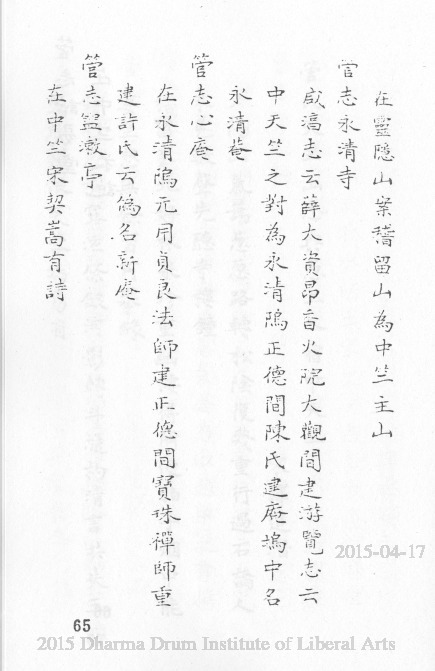 在靈隱山案稽留山為中竺主山
嘗志永清寺
咸淳志云薛大資昂香火院大觀間建游覽志云
中天竺之對為永清隖正德間陳氏建庵塢中名
永清菴
嘗志心庵
在永清隖元用貞良法師建正德間寶珠禪師重
建許氏云偽名新庵
嘗志盥漱亭
在中竺宋契嵩有詩
65
2015-04-17
2015 Dharma Drum Institute of Liberal Arts